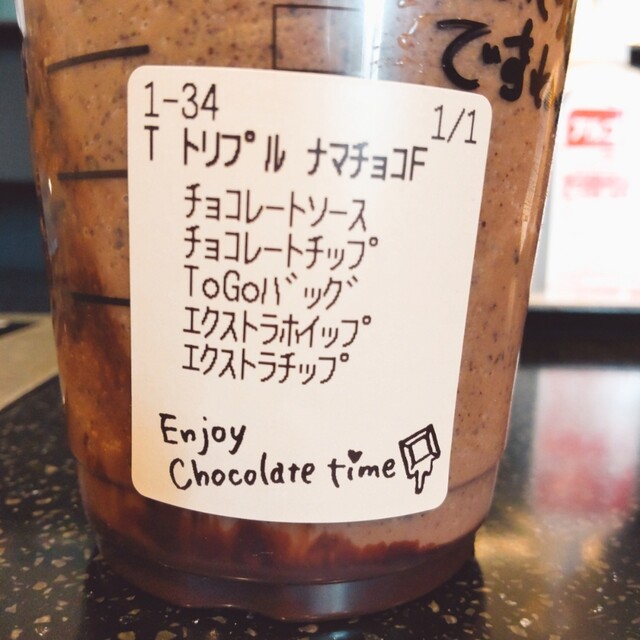 ですね
1-34
1/1
T トリプル ナマチョコF
チョコレートソース
チョコレートチップ
ToGoバッグ
エクストラホイップ
エクストラチップ
Enjoy
Chocolate time